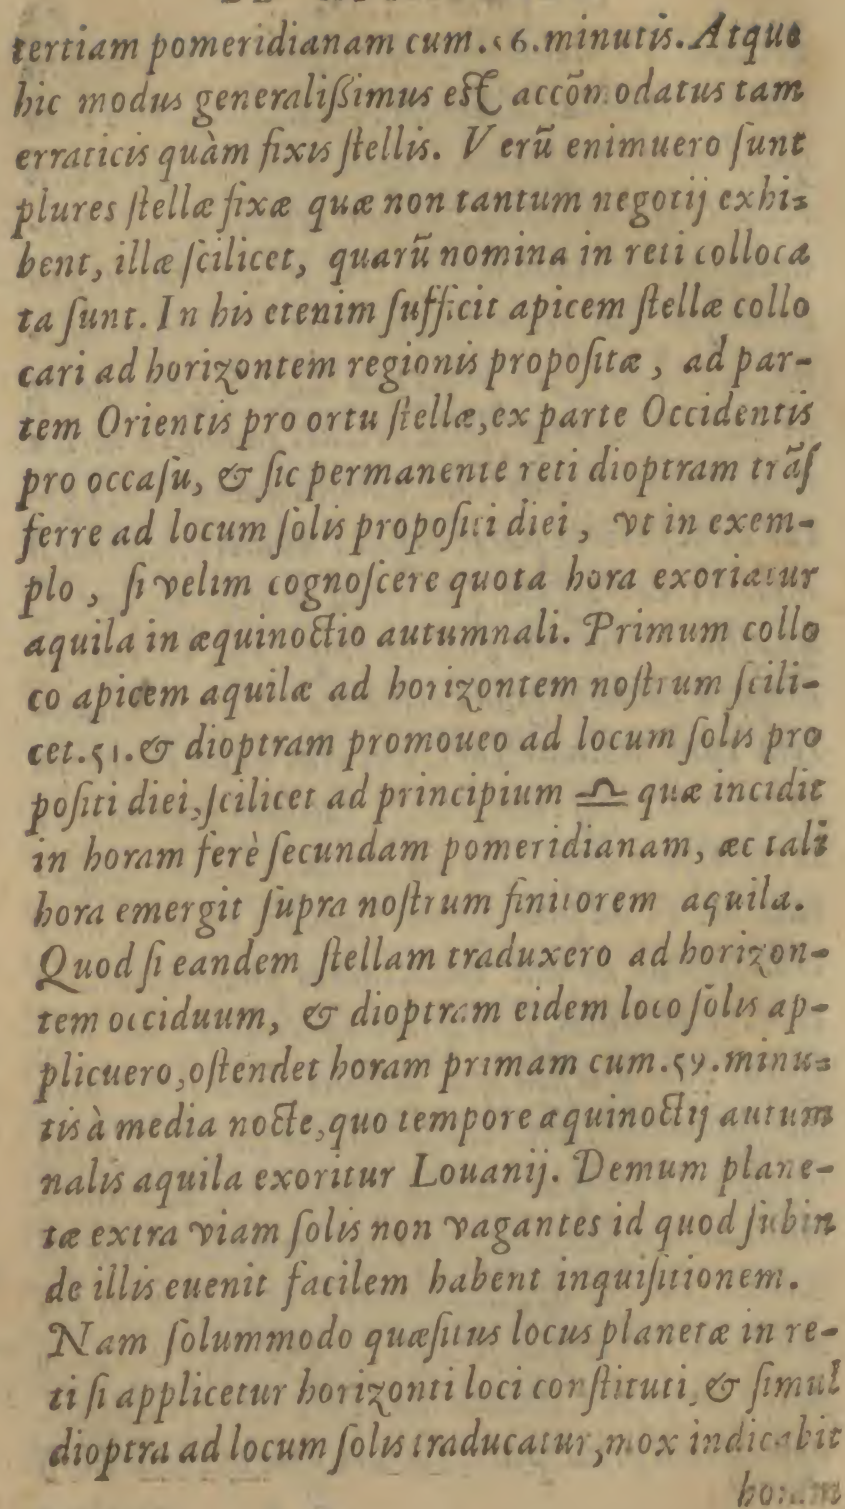 tertiam pomeridianam cum.56.minutis.Atque
hic modus generalißimus est accõmodatus tam
erraticis quàm fixis ſtellis. Verũ enimuero ſunt
plures ſtellæ fixæ quæ non tantum negotij exhi-
bent, illæ ſcilicet, quarũ nomina in reti colloca
ta ſunt. In his etenim ſufficit apicem ſtellæ collo
cari ad horizontem regionis propoſitæ, ad par-
tem Orientis pro ortu ſtellæ,ex parte Occidentis
pro occaſu, & ſic permanente reti dioptram trãſ
ferre ad locum ſolis propoſiti diei, vt in exem-
plo, ſi velim cognoſcere quota hora exoriatur
aquila in æquinoctio autumnali. Primum collo
co apicem aquilæ ad horizontem noſtrum ſcili-
cet.51.& dioptram promoueo ad locum ſolis pro
poſiti diei,ſcilicet ad principium ♎ quæ incidit
in horam ferè ſecundam pomeridianam, æc tali
hora emergit ſupra noſtrum finitorem aquila.
Quod ſi eandem ſtellam traduxero ad horizon-
tem occiduum, & dioptram eidem loco ſolis ap-
plicuero,oſtendet horam primam cum.59.minu-
tis à media nocte,quo tempore æquinoctij autum
nalis aquila exoritur Louanij. Demum plane-
tæ extra viam ſolis non vagantes id quod ſubin
de illis euenit facilem habent inquiſitionem.
Nam ſolummodo quæſitus locus planetæ in re-
ti ſi applicetur horizonti loci conſtituti, & ſimul
dioptra ad locum ſolis traducatur,mox indicabit
horam